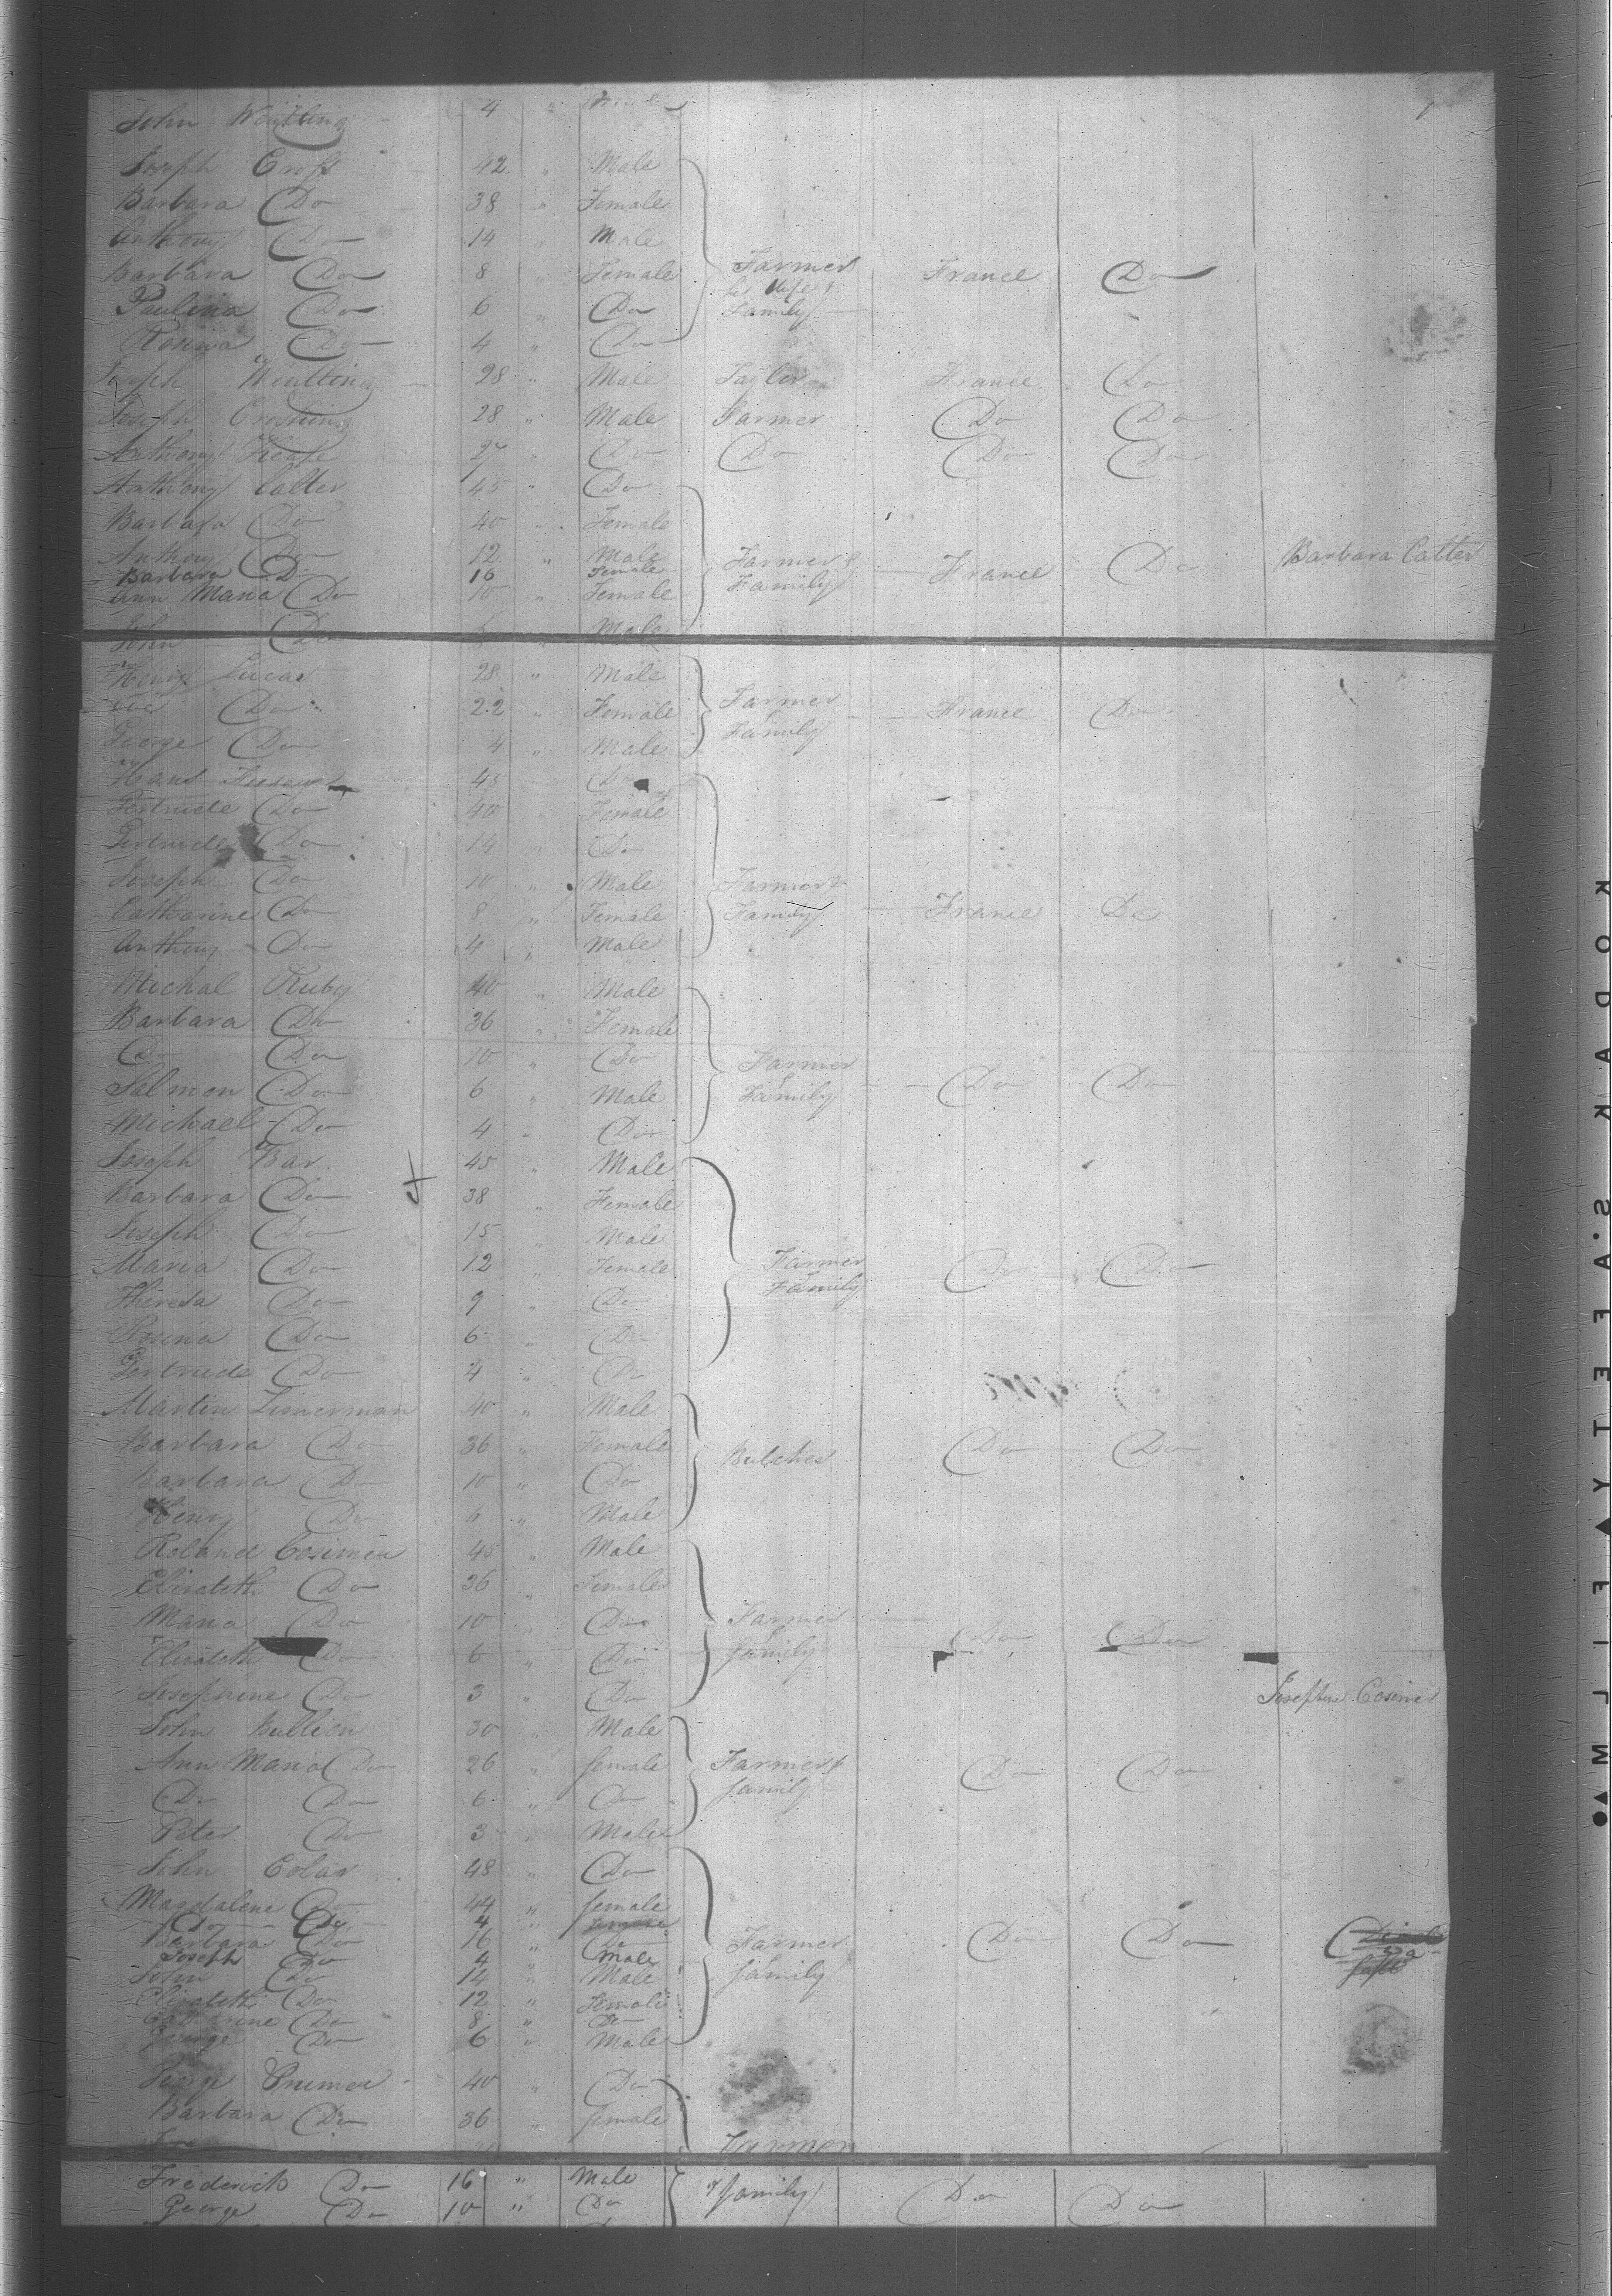 John Weutling 4 " Male
Joseph Croft 42 " Male
Barbara Do 38 " Female
Anthony Do 14 " Male
Barbara Do 8 " Female Farmer France Do
his Wife &
Paulina Do 6 " Do Family
Rosina Do 4 " Do
Joseph Weutling 28 " Male Taylor France Do
Joseph 28 " Male Farmer Do Do
Anthony 27 " Do Do Do Do
Anthony Calter 45 " Do
Barbara Do 40 " Female
Anthony Do 12 " Male Farmer & France Do Barbara Calter
Barbara D 16 Female
Ann Maria Do 10 " Female Family
John Do Male
Henry Lucas 28 " Male
Do 22 " Female Farmer & France Do
George Do 4 " Male Family
Hans 45 Do
Gertrude Do 40 " Female
Gertrude Do 14 " Do
Joseph Do 10 " Male Farmer &
Catharine Do 8 " Female Family France Do
Anthony Do 4 " Male
Michal Ruby 40 " Male
Barbara Do 36 " Female
Do Do 10 " Do Farmer
Salmon Do 6 " Male & Family Do Do
Michael Do 4 " Do
Joseph Bar 45 " Male
Barbara Do 38 " Female
Joseph Do 15 " Male
Maria Do 12 " Female Farmer Do Do
Theresa Do 9 " Do & Family
Rosina Do 6 " Do
Gertrude Do 4 " Do
Martin Zimerman 40 " Male
Barbara Do 36 " Female Butcher Do Do
Barbara Do 10 " Do
Henry Do 6 " Male
Roland Cosimer 45 " Male
Elizabeth Do 36 " Female
Maria Do 10 " Do Farmer Do Do
Elizabeth Do 6 " Do & family
Josephine Do 3 " Do Josephine Cosimer
John Bullion 30 " Male
Ann Maria Do 26 " female Farmer & Do Do
Do Do 6 " Do family
Peter Do 3 " Male
John Colar 48 " Do
Magdalene Do 44 " female
Do Do 4 "
Barbara Do 16 " Do Farmer Do Do
Joseph Do 4 " Male
John Do 14 " Male & family
Elizabeth Do 12 " Female
Catharine Do 8 " Do
George Do 6 " Male
George 40 " Do
Barbara Do 36 " female
Farmer
Frederick Do 16 " Male & family Do Do
George Do 10 " Do
KODAK S.AFETY▲FILM●▲